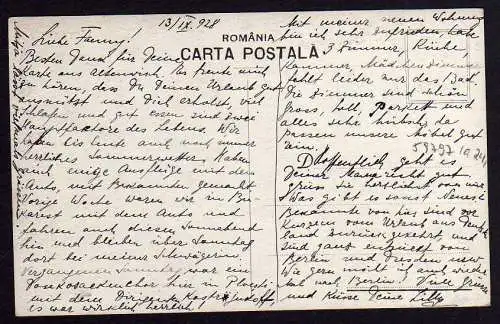 13/IX. 928
ROMÂNIA
CARTA POSTALĂ
Liebe Fanny!
Besten Dank für Deine
Karte aus Altenwirt. Es freute mich
zu hören, dass Du Deinen Urlaub gut
ausnützt und Dich erholst, viel
schlafen und gut essen sind zwei
Hauptfactore des Lebens. Wir
haben bis heute auch noch immer
herrliches Sommerwetter. Haben
auch einige Ausflüge mit dem
Auto, mit Bekannten gemacht
Vorige Woche waren wir in Bu
karest mit dem Auto und
fahren auch diesen Sonnabend
hin und bleiben über Sonntag
dort bei meiner Schwägerin
Vergangenen Samstag war ein
Donkosakenchor hier in Ploesti
mit dem Dirigenten
es war wirklich herrlich!
Mit meiner neuen Wohnung
bin ich sehr zufrieden, habe
3 Zimmer, Küche
Kammer, Mädchenzimmer
fehlt leider nur das Bad.
Die Zimmer sind schön
gross, hell, Parkett und
alles sehr hübsch, da
passen unsere Möbel gut
ein.
59797
Hoffentlich geht es
Deiner Mama recht gut
grüss sie herzlich von mir.
Was gibt es sonst Neues?
Bekannte von uns sind vor
Kurzem vom Urlaub aus Deutsch
land zurück gekehrt, und
sind ganz entzückt von
Berlin und Dresden
Wie gern möcht ich auch wieder
mal nach Berlin! Viele Grüsse
und Küsse Deine Lilly